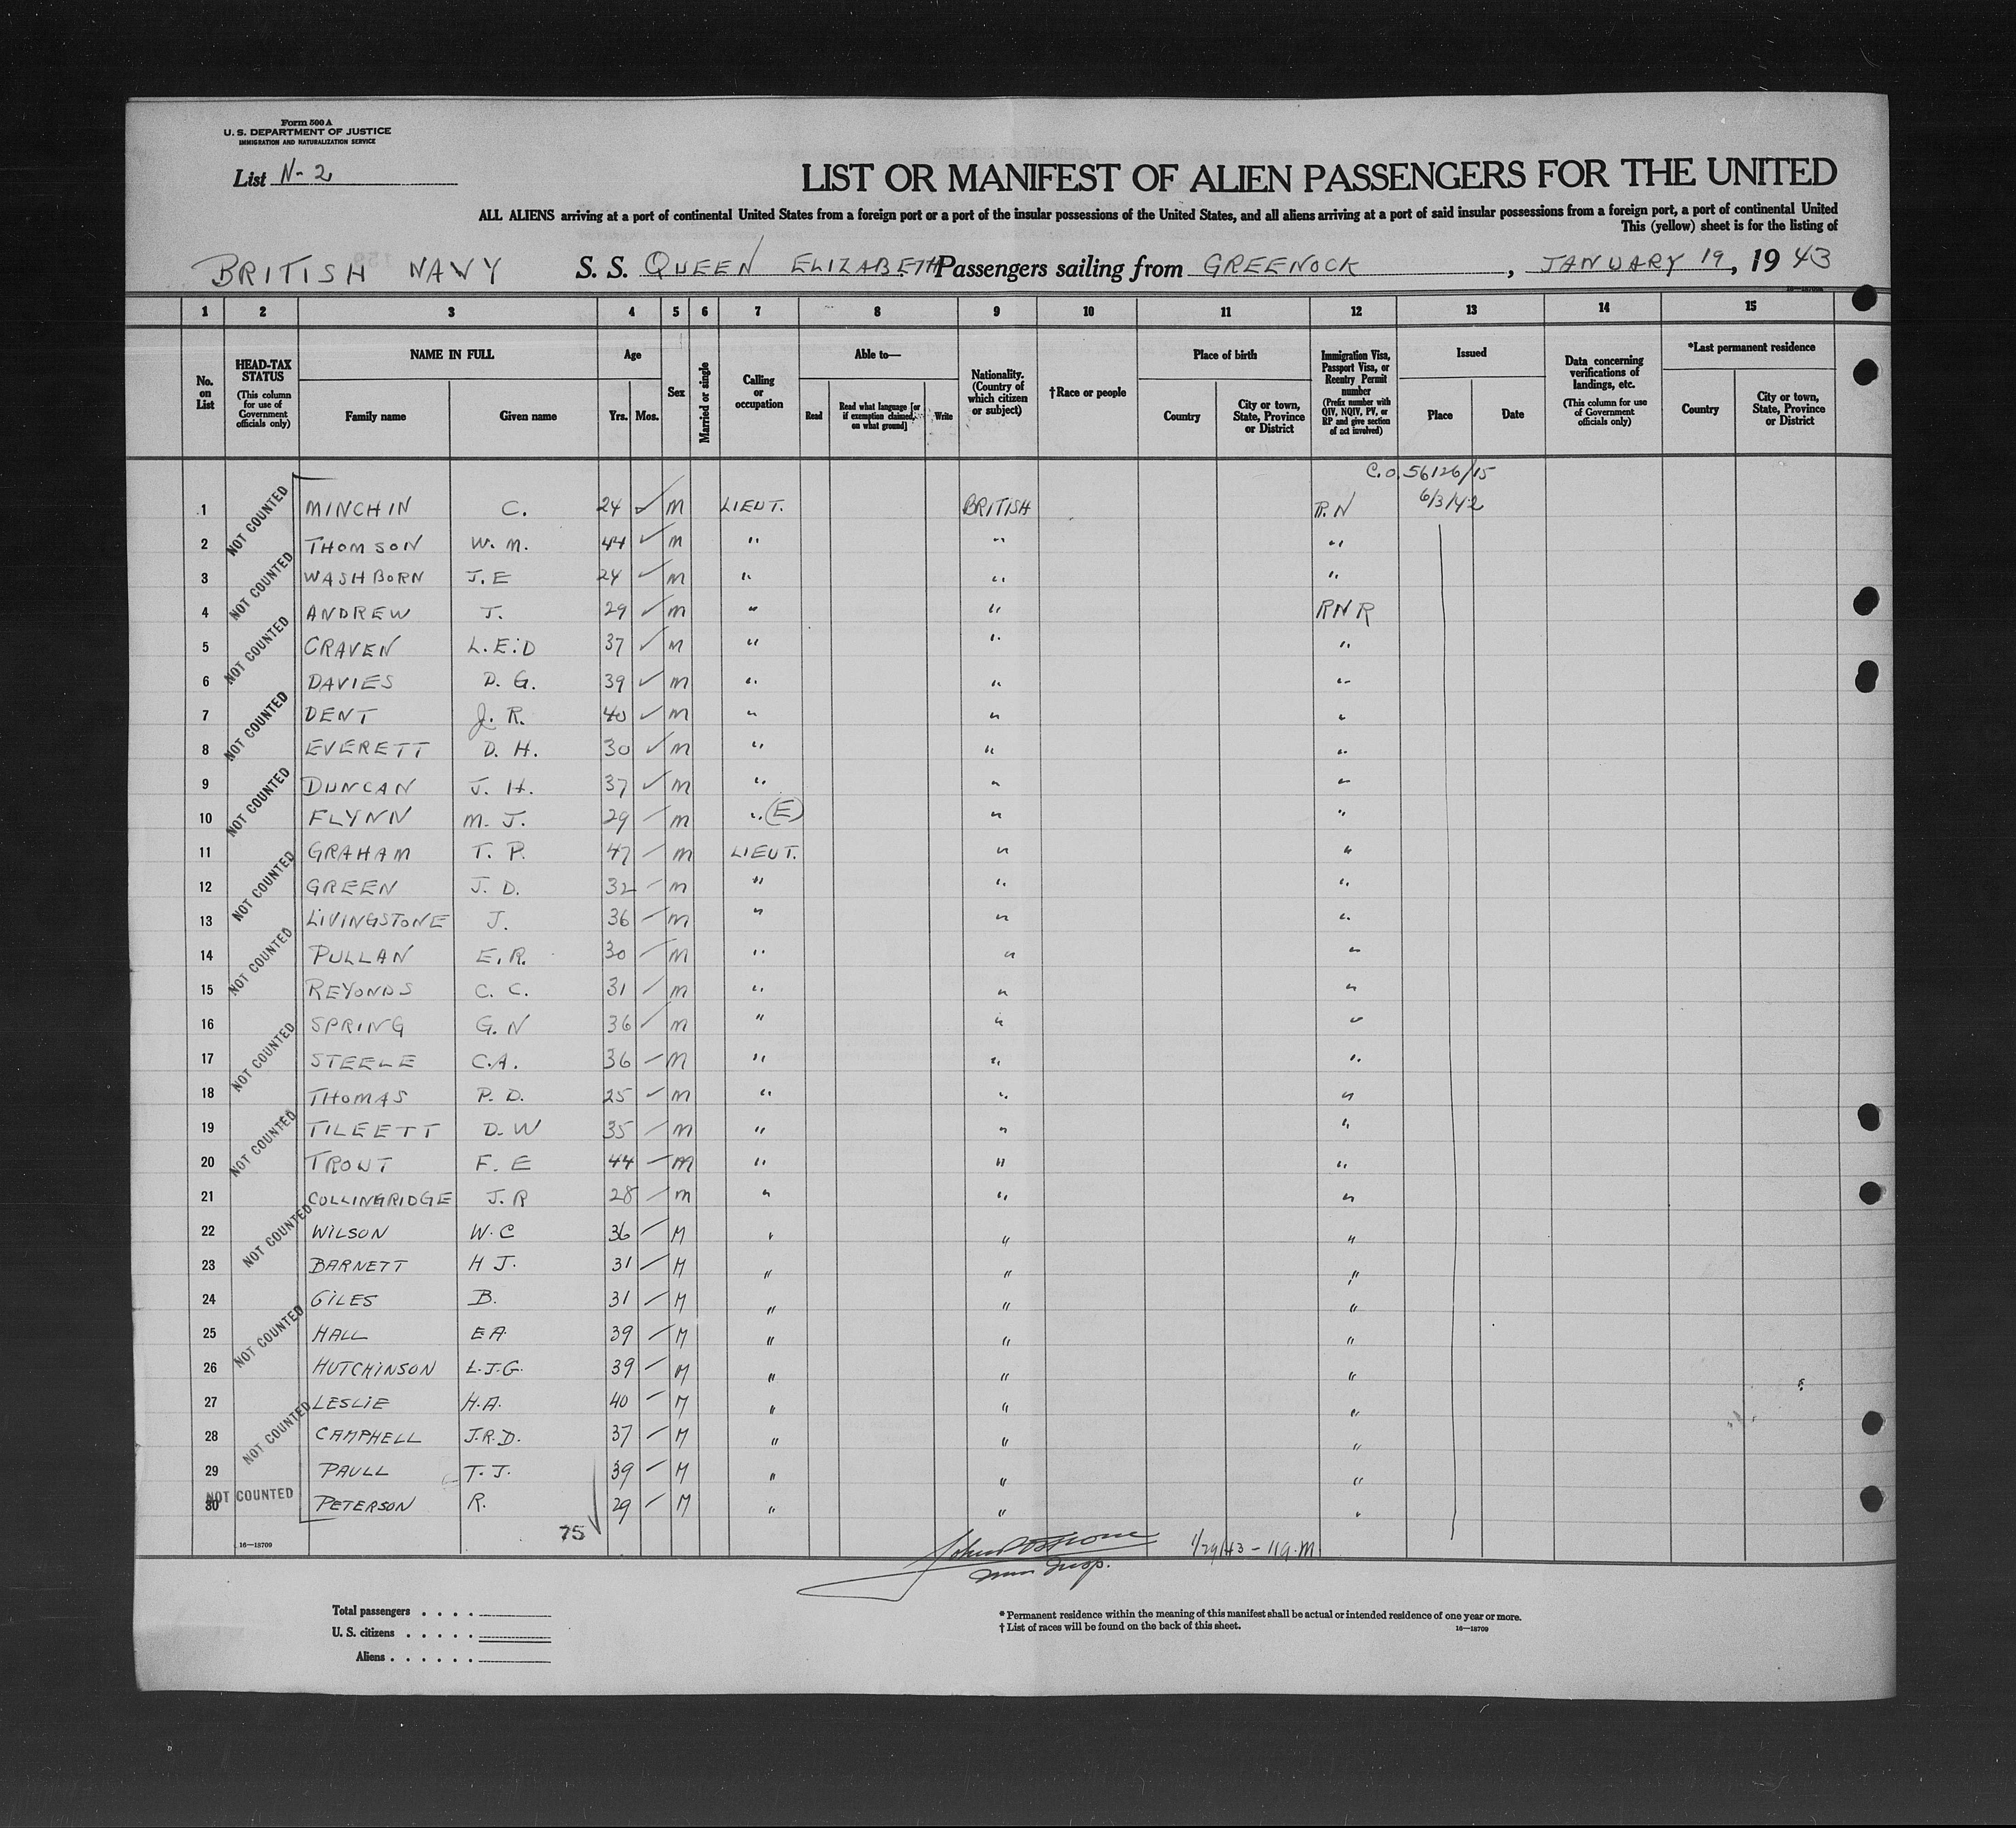 Form 500 A
U. S. DEPARTMENT OF JUSTICE
IMMIGRATION AND NATURALIZATION SERVICE
List N-2
LIST OR MANIFEST OF ALIEN PASSENGERS FOR THE UNITED
ALL ALIENS arriving at a port of continental United States from a foreign port or a port of the insular possessions of the United States, and all aliens arriving at a port of said insular possessions from a foreign port, a port of continental United
This (yellow) sheet is for the listing of
BRITISH NAVY S. S. QUEEN ELIZABETH Passengers sailing from GREENOCK, JANUARY 19, 1943
1 2 3 4 5 6 7 8 9 10 11 12 13 14 15
No. on List
HEAD-TAX STATUS (This column for use of Government officials only)
NAME IN FULL
Family name Given name
Age
Yrs. Mos.
Sex
Married or single
Calling or occupation
Able to—
Read Read what language [or if exemption claimed, on what ground] Write
Nationality. (Country of which citizen or subject)
†Race or people
Place of birth
Country City or town, State, Province or District
Immigration Visa, Passport Visa, or Reentry Permit number (Prefix number with QIV, NQIV, PV, or RP and give section of act involved)
Issued
Place Date
Data concerning verifications of landings, etc. (This column for use of Government officials only)
*Last permanent residence
Country City or town, State, Province or District
C.O. 56126/15
6/3/42
1 NOT COUNTED MINCHIN C. 24 ✓ M LIEUT. BRITISH R.N
2 THOMSON W. M. 44 ✓ M " " "
3 NOT COUNTED WASHBORN J.E 24 ✓ M " " "
4 ANDREW J. 29 ✓ M " " RNR
5 NOT COUNTED CRAVEN L.E.D 37 ✓ M " " "
6 DAVIES D. G. 39 ✓ M " " "
7 NOT COUNTED DENT J. R. 40 ✓ M " " "
8 EVERETT D. H. 30 ✓ M " " "
9 NOT COUNTED DUNCAN J. H. 37 ✓ M " " "
10 FLYNN M. J. 29 M " (E) " "
11 GRAHAM T. P. 47 M LIEUT. " "
12 NOT COUNTED GREEN J. D. 32 M " " "
13 LIVINGSTONE J. 36 M " " "
14 NOT COUNTED PULLAN E. R. 30 M " " "
15 REYONDS C. C. 31 M " " "
16 SPRING G. N 36 M " " "
17 NOT COUNTED STEELE C.A. 36 M " " "
18 THOMAS P. D. 25 M " " "
19 NOT COUNTED TILEETT D. W 35 M " " "
20 TROWT F. E 44 M " " "
21 COLLINGRIDGE J. R 28 M " " "
22 NOT COUNTED WILSON W. C 36 M " " "
23 BARNETT H J. 31 M " " "
24 GILES B. 31 M " " "
25 NOT COUNTED HALL E A. 39 M " " "
26 HUTCHINSON L.J.G. 39 M " " "
27 LESLIE H.A. 40 M " " "
28 NOT COUNTED CAMPHELL J.R.D. 37 M " " "
29 PAULL T. J. 39 M " " "
30 NOT COUNTED PETERSON R. 29 M " " "
75
16—18709
Insp.
1/29/43 - 119.M
Total passengers
U. S. citizens
Aliens
* Permanent residence within the meaning of this manifest shall be actual or intended residence of one year or more.
† List of races will be found on the back of this sheet.
16—18709